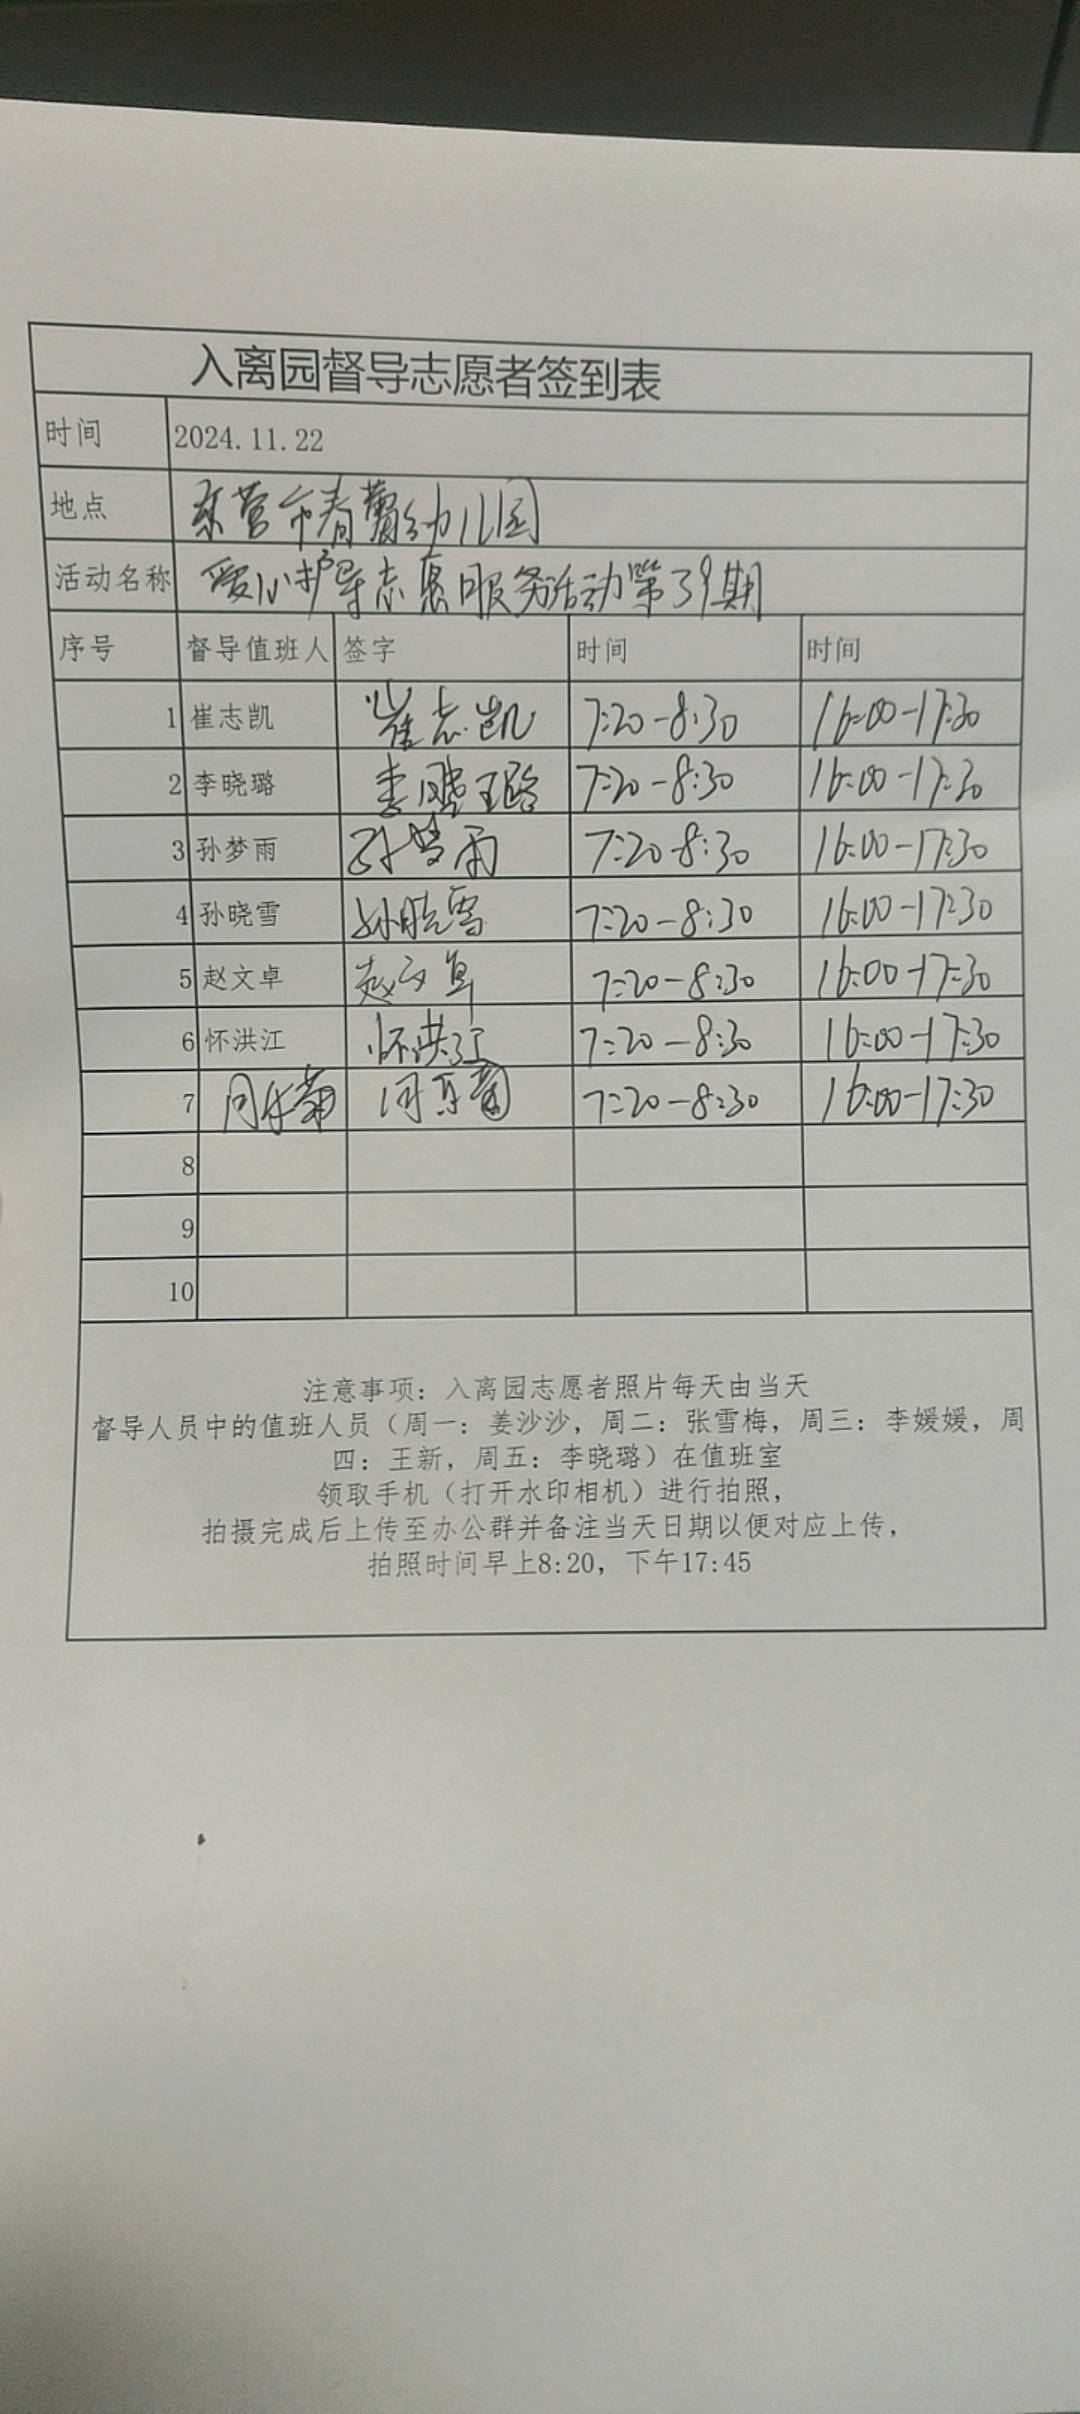 入离园督导志愿者签到表
时间 2024.11.22
地点 东营市春蕾幼儿园
活动名称 爱心护导志愿服务活动第39期
序号 督导值班人 签字 时间 时间
1 崔志凯 崔志凯 7:20-8:30 16:00-17:30
2 李晓璐 李晓璐 7:20-8:30 16:00-17:30
3 孙梦雨 孙梦雨 7:20-8:30 16:00-17:30
4 孙晓雪 孙晓雪 7:20-8:30 16:00-17:30
5 赵文卓 赵文卓 7:20-8:30 16:00-17:30
6 怀洪江 怀洪江 7:20-8:30 16:00-17:30
7 7:20-8:30 16:00-17:30
8
9
10
注意事项：入离园志愿者照片每天由当天
督导人员中的值班人员（周一：姜沙沙，周二：张雪梅，周三：李媛媛，周
四：王新，周五：李晓璐）在值班室
领取手机（打开水印相机）进行拍照，
拍摄完成后上传至办公群并备注当天日期以便对应上传，
拍照时间早上8:20，下午17:45